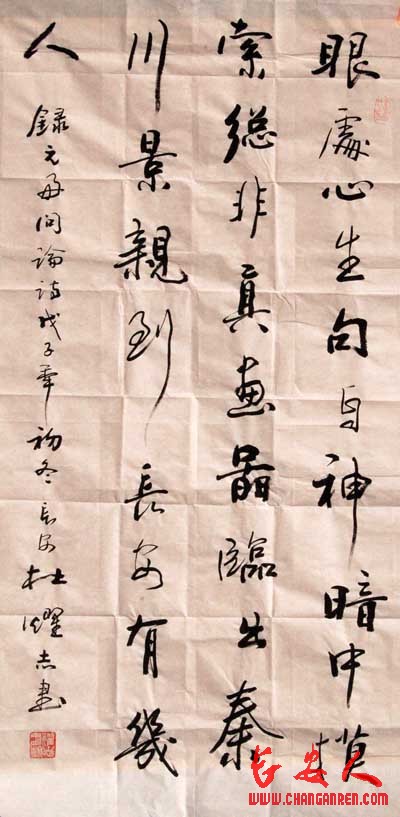 眼處心生句自神暗中摸
索總非真畫圖臨出秦
川景親到長安有幾
人
錄元好問論詩戊子年初冬長安杜燿志書
长安人
WWW.CHANGANREN.COM